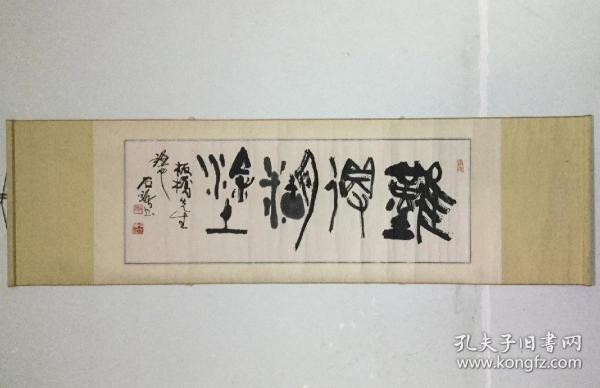 難得糊塗
板橋先生
語也
孔夫子旧书网
www.kongfz.com